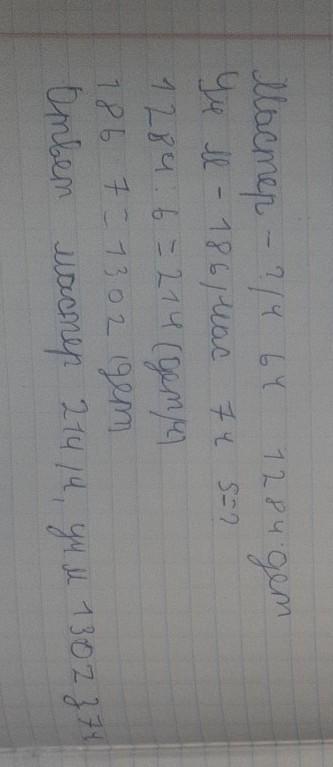 Мастер - ?/ч 6ч 1284 дет
Уч м - 186/час 7ч S=?
1284 : 6 = 214 (дет/ч)
186 7 = 1302 (дет
Ответ мастер 214/ч, уч м 1302 }7ч